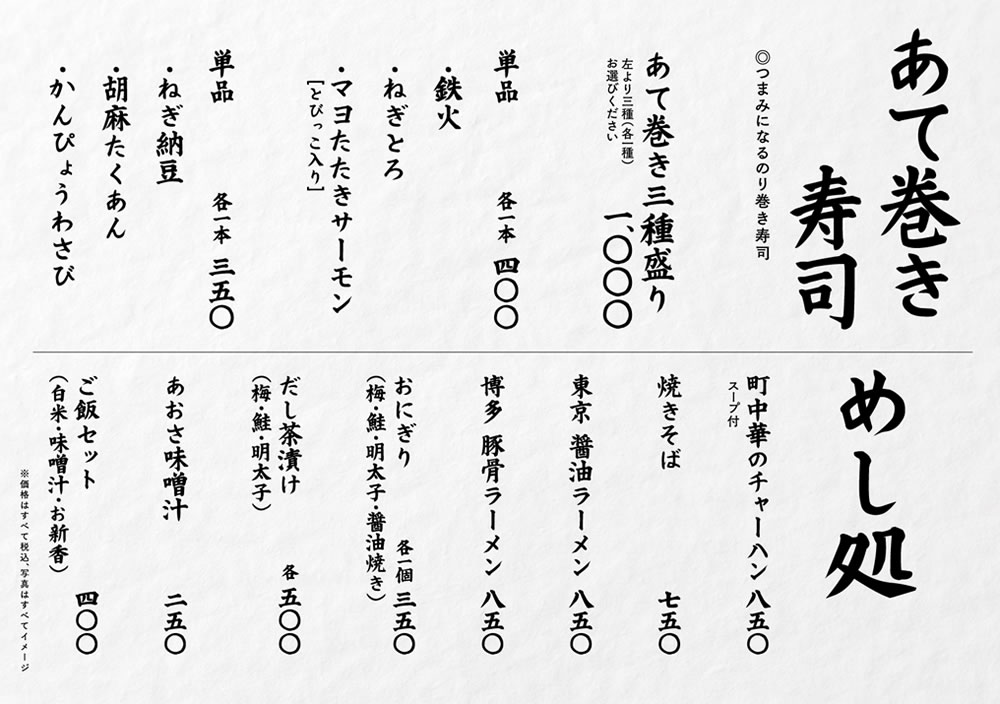 あて巻き
寿司
◎つまみになるのり巻き寿司
あて巻き三種盛り
左より三種(各一種)
お選びください
一、〇〇〇
単品 各一本 四〇〇
・鉄火
・ねぎとろ
・マヨたたきサーモン
[とびっこ入り]
単品 各一本 三五〇
・ねぎ納豆
・胡麻たくあん
・かんぴょうわさび
めし処
町中華のチャーハン 八五〇
スープ付
焼きそば 七五〇
東京 醤油ラーメン 八五〇
博多 豚骨ラーメン 八五〇
おにぎり 各一個 三五〇
(梅・鮭・明太子・醤油焼き)
だし茶漬け 各 五〇〇
(梅・鮭・明太子)
あおさ味噌汁 二五〇
ご飯セット 四〇〇
(白米・味噌汁・お新香)
※価格はすべて税込、写真はすべてイメージ